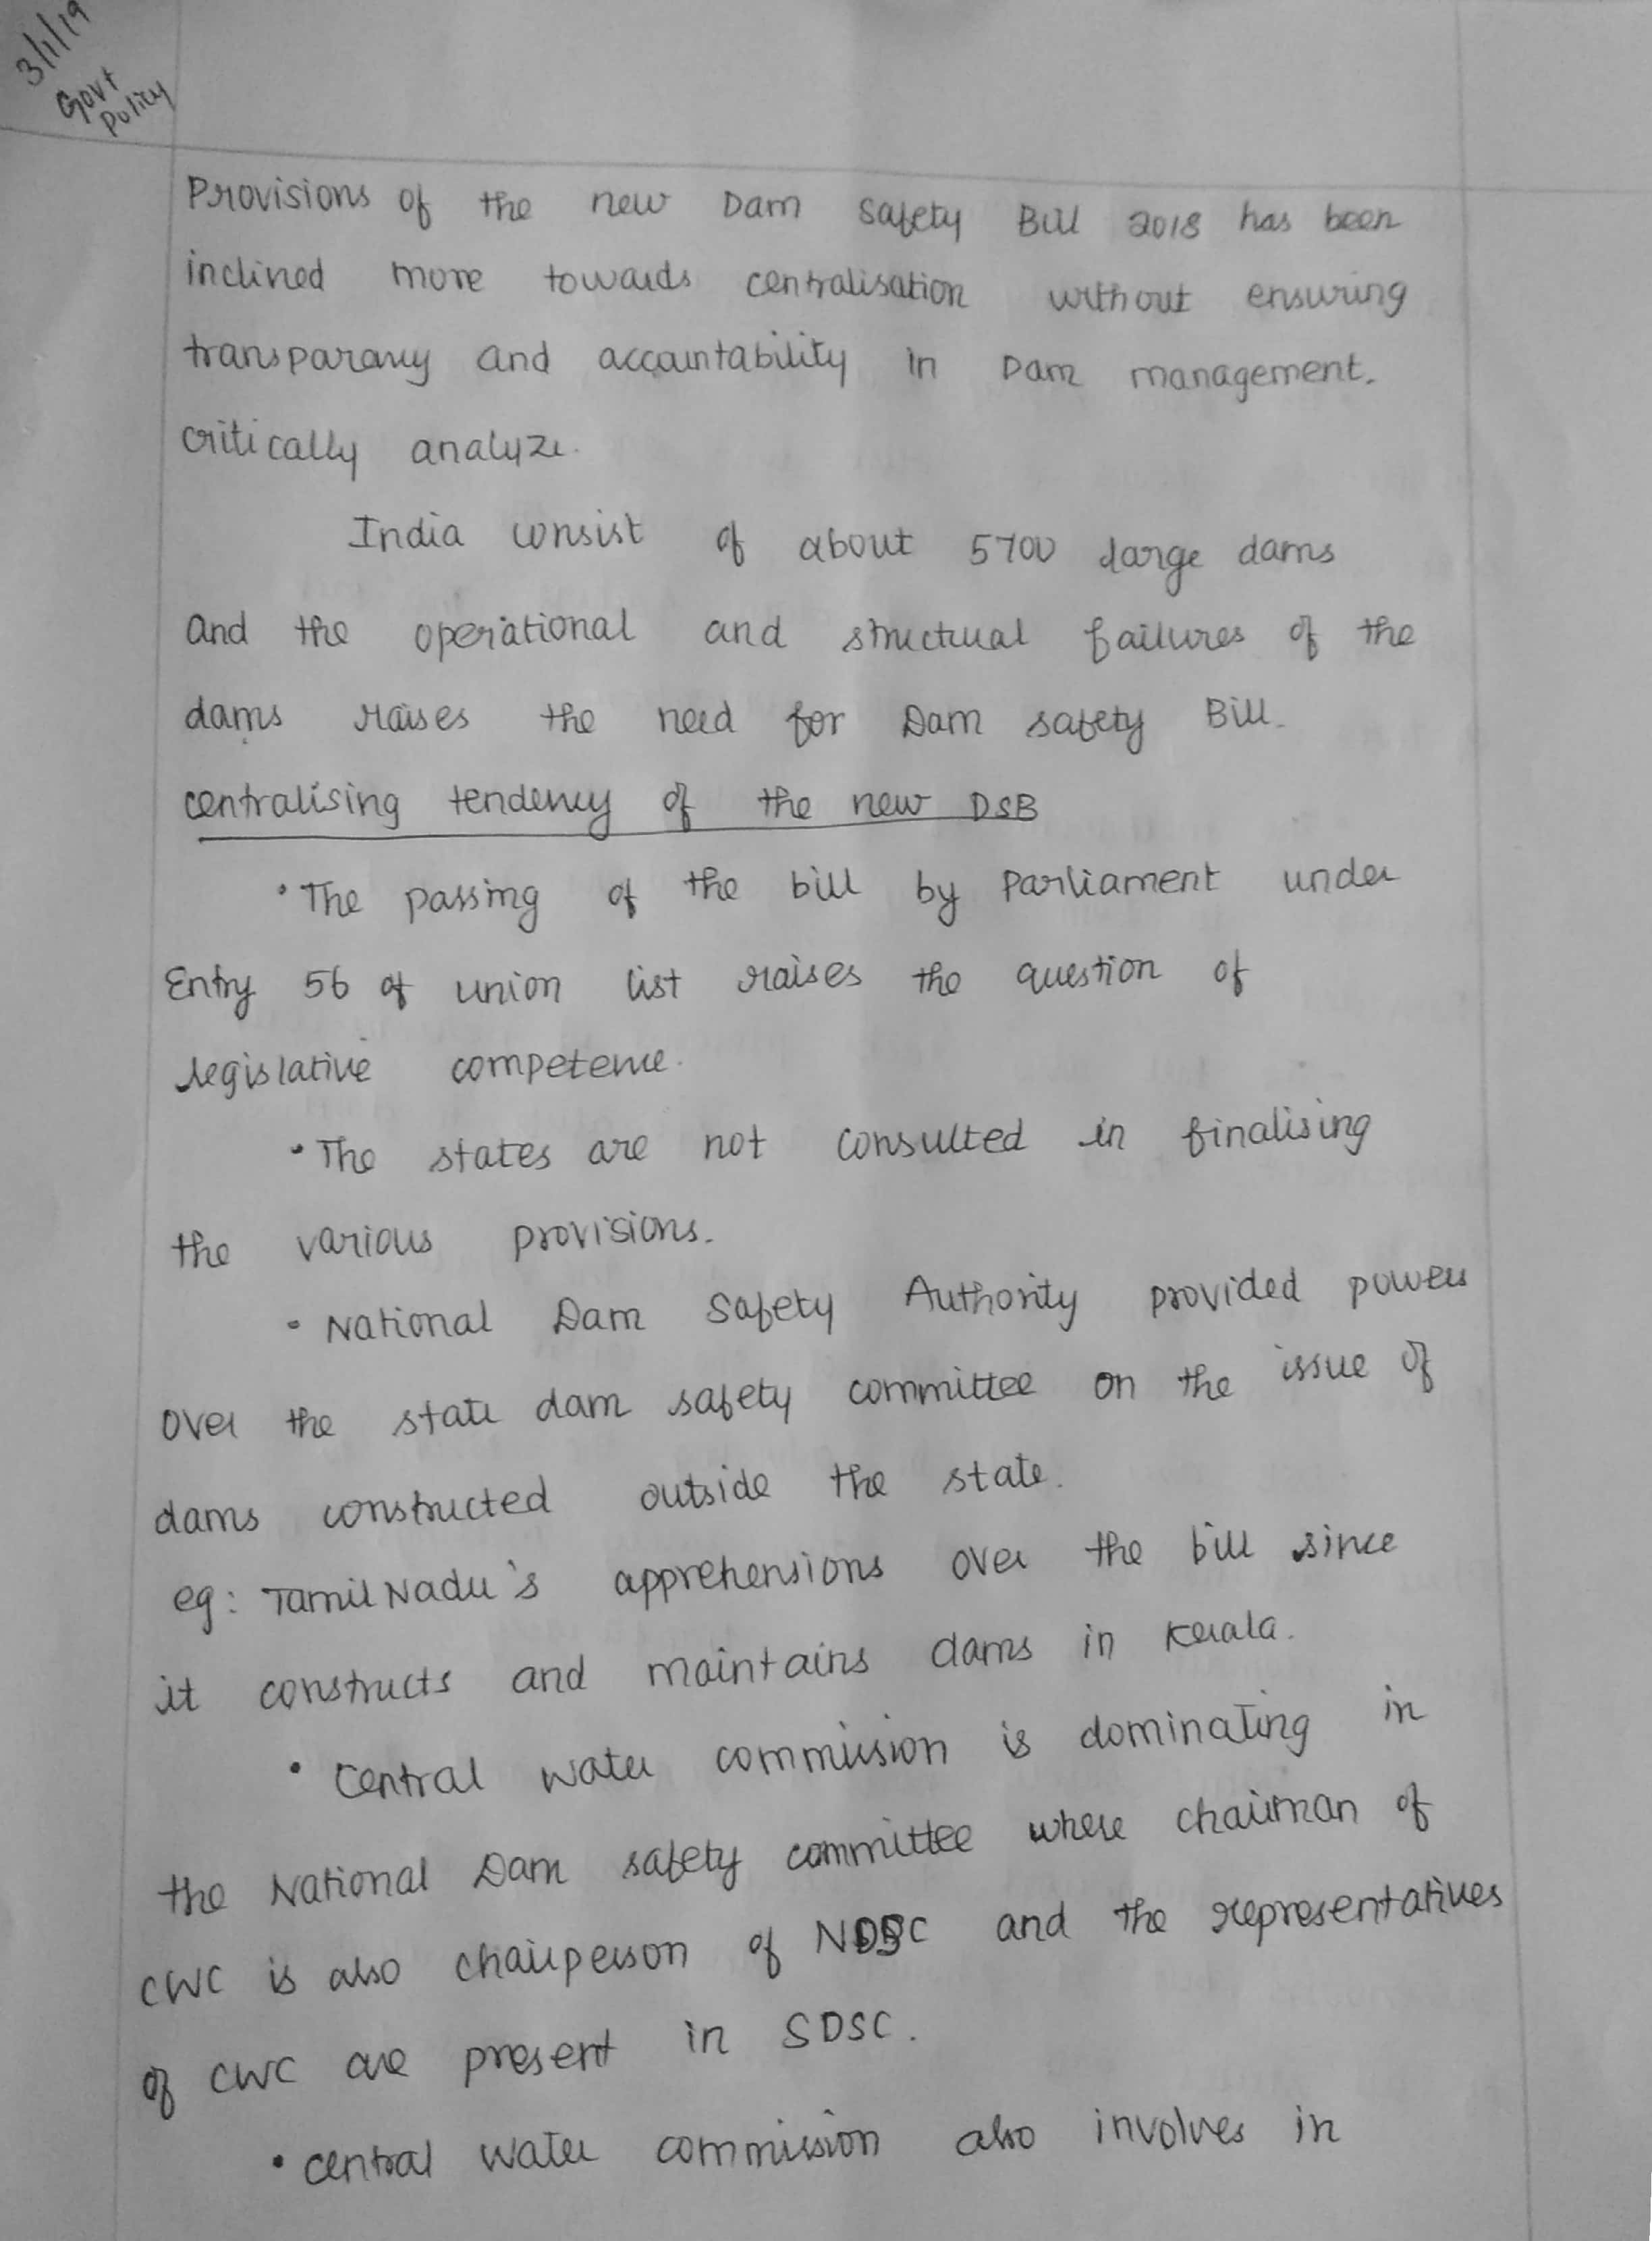 3/1/19
Govt
policy
Provisions of the new Dam Safety Bill 2018 has been
inclined more towards centralisation without ensuring
transparany and accountability in Dam management.
critically analyze.
India consist of about 5700 large dams
and the operational and structual failures of the
dams raises the need for Dam safety Bill.
centralising tendency of the new DSB
• The passing of the bill by Parliament under
Entry 56 of union list raises the question of
legislative competence.
• The states are not consulted in finalising
the various provisions.
• National Dam Safety Authority provided powers
over the state dam safety committee on the issue of
dams constructed outside the state.
eg: TamilNadu's apprehensions over the bill since
it constructs and maintains dams in Kerala.
• Central water commission is dominating in
the National Dam safety committee where chairman of
CWC is also chairperson of NDSC and the representatives
of CWC are present in SDSC.
• central water commission also involves in